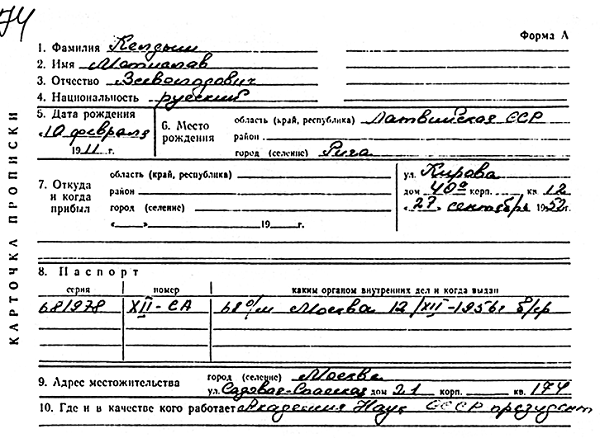 174
Форма А
КАРТОЧКА ПРОПИСКИ
1. Фамилия Келдыш
2. Имя Мстислав
3. Отчество Всеволодович
4. Национальность русский
5. Дата рождения
«10 февраля
1911 г.
6. Место рождения
область (край, республика) Латвийская ССР
район
город (селение) Рига
7. Откуда и когда прибыл
область (край, республика)
район
город (селение)
«    »          19    г.
ул. Кирова
дом 40а корп.      кв 12
«27» сентября 1952 г.
8. Паспорт
серия номер каким органом внутренних дел и когда выдан
681978 XII-СА 68 о/м Москва 12/XII-1956г б/ср
9. Адрес местожительства город (селение) Москва
ул. Садовая-Спасская дом 21 корп.      кв. 174
10. Где и в качестве кого работает Академия Наук СССР президент